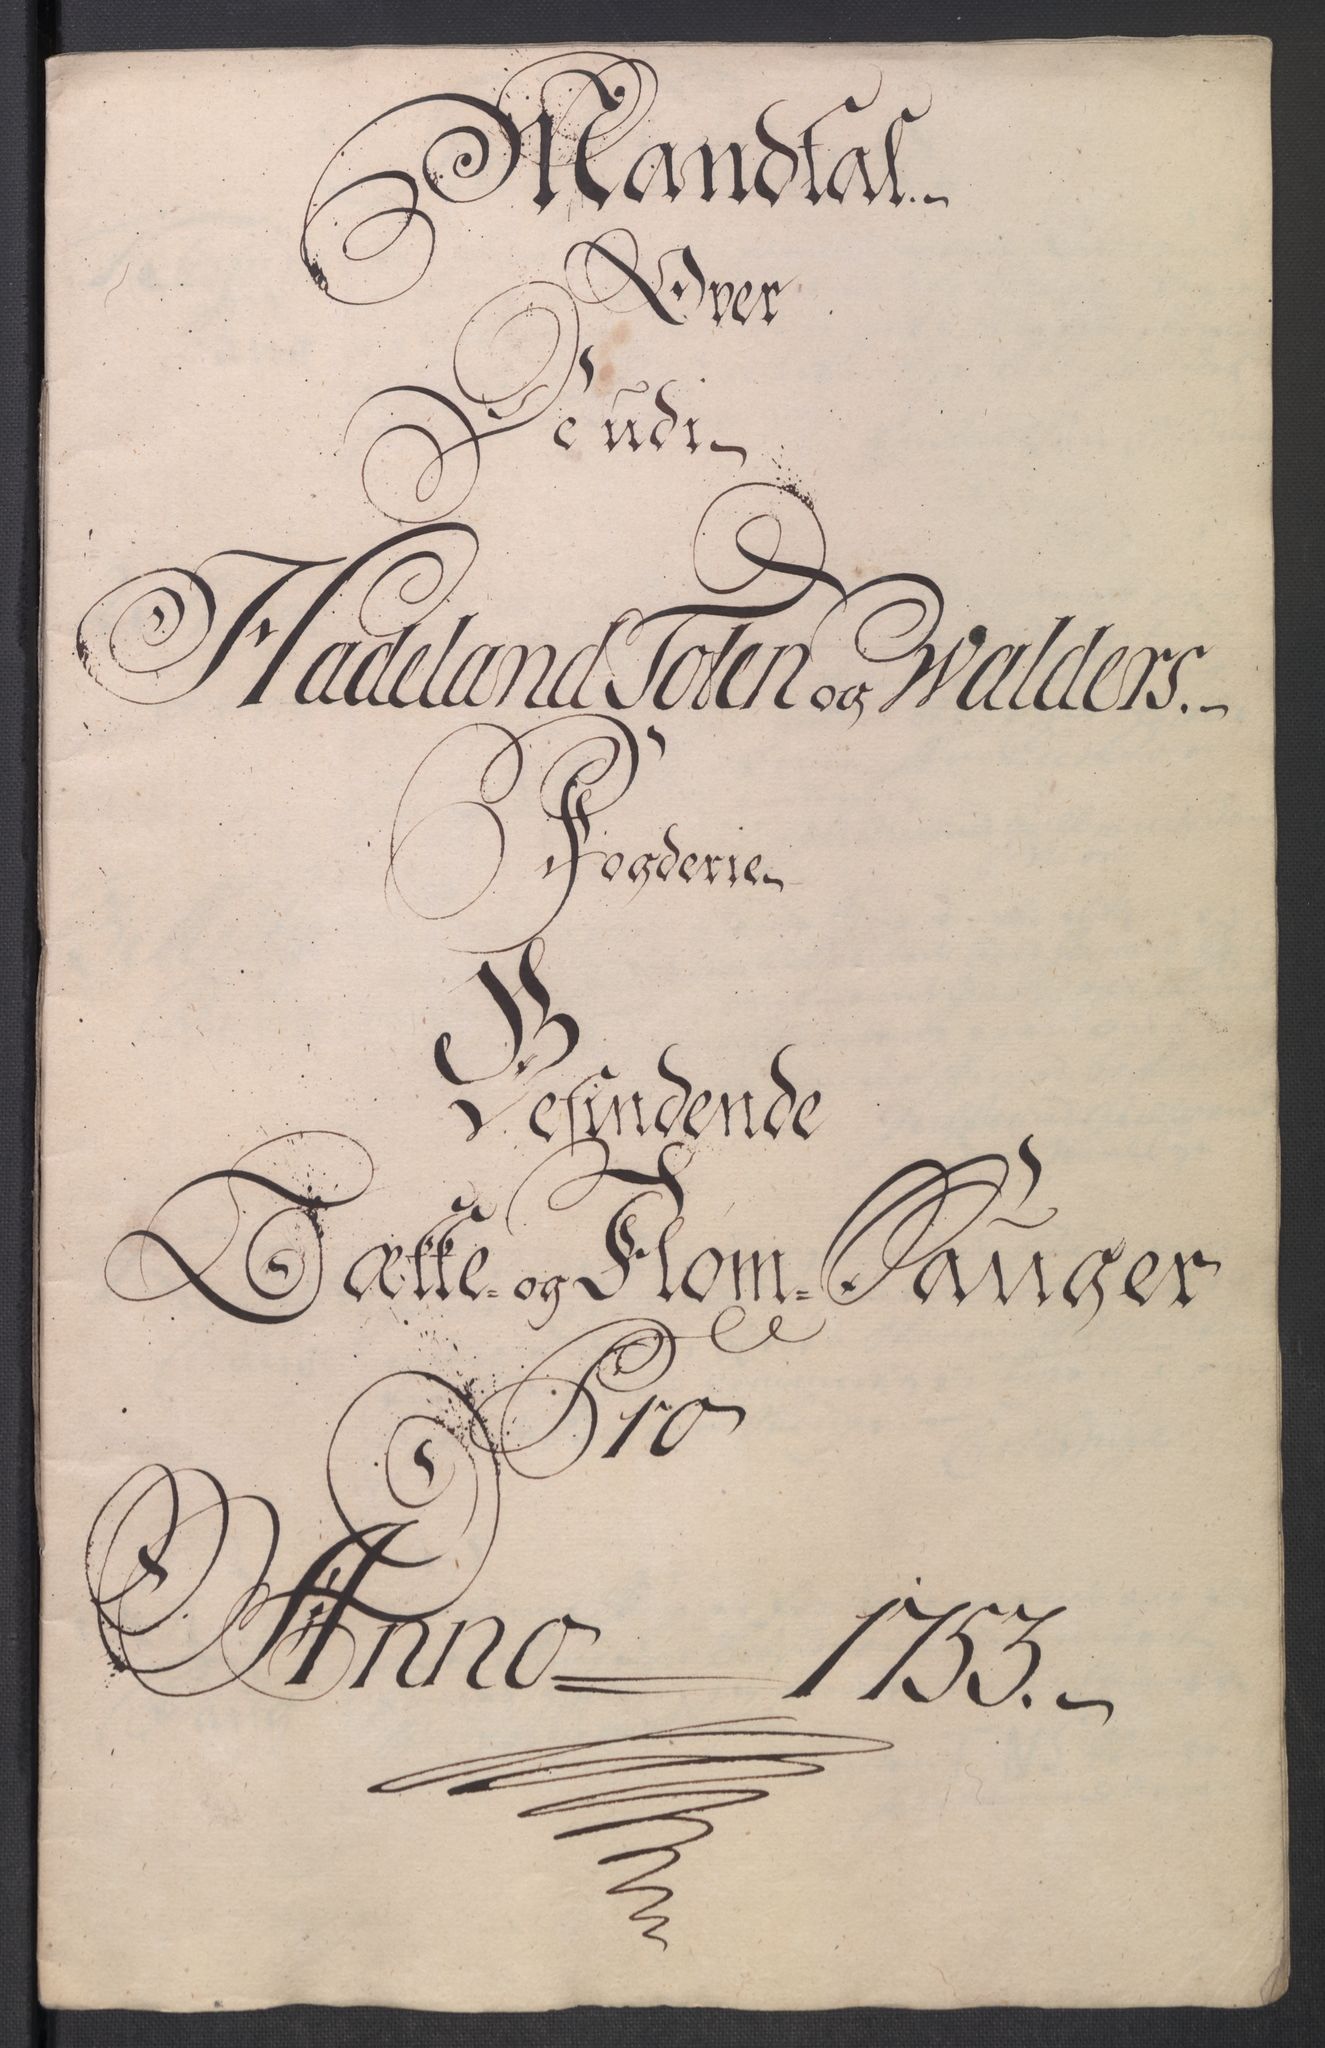 Mandtal
Over
De udi
Hadeland Toten og Walders.
Fogderie
Befindende
Bække- og Flom- Sauger
Pro
Anno 1753.